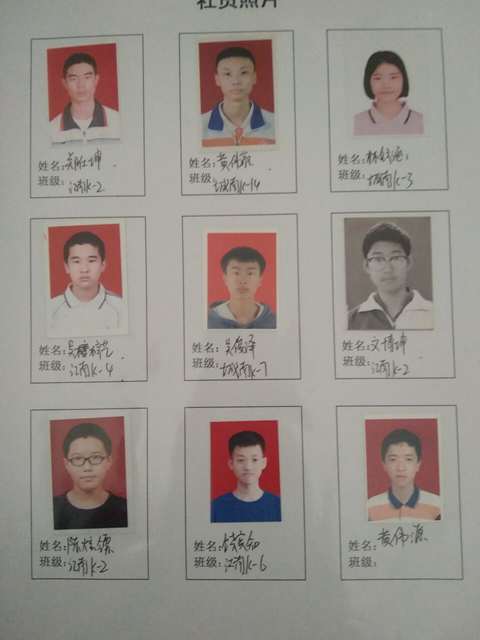 社员照片
姓名:吴胜坤
班级:江南K-2
姓名:黄伟
班级:城南K-14
姓名:林
班级:城南K-3
姓名:吴
班级:江南K-4
姓名:吴俊泽
班级:城南K-7
姓名:文博坤
班级:江南K-2
姓名:陈
班级:江南K-2
姓名:
班级:江南K-6
姓名:黄伟源
班级: